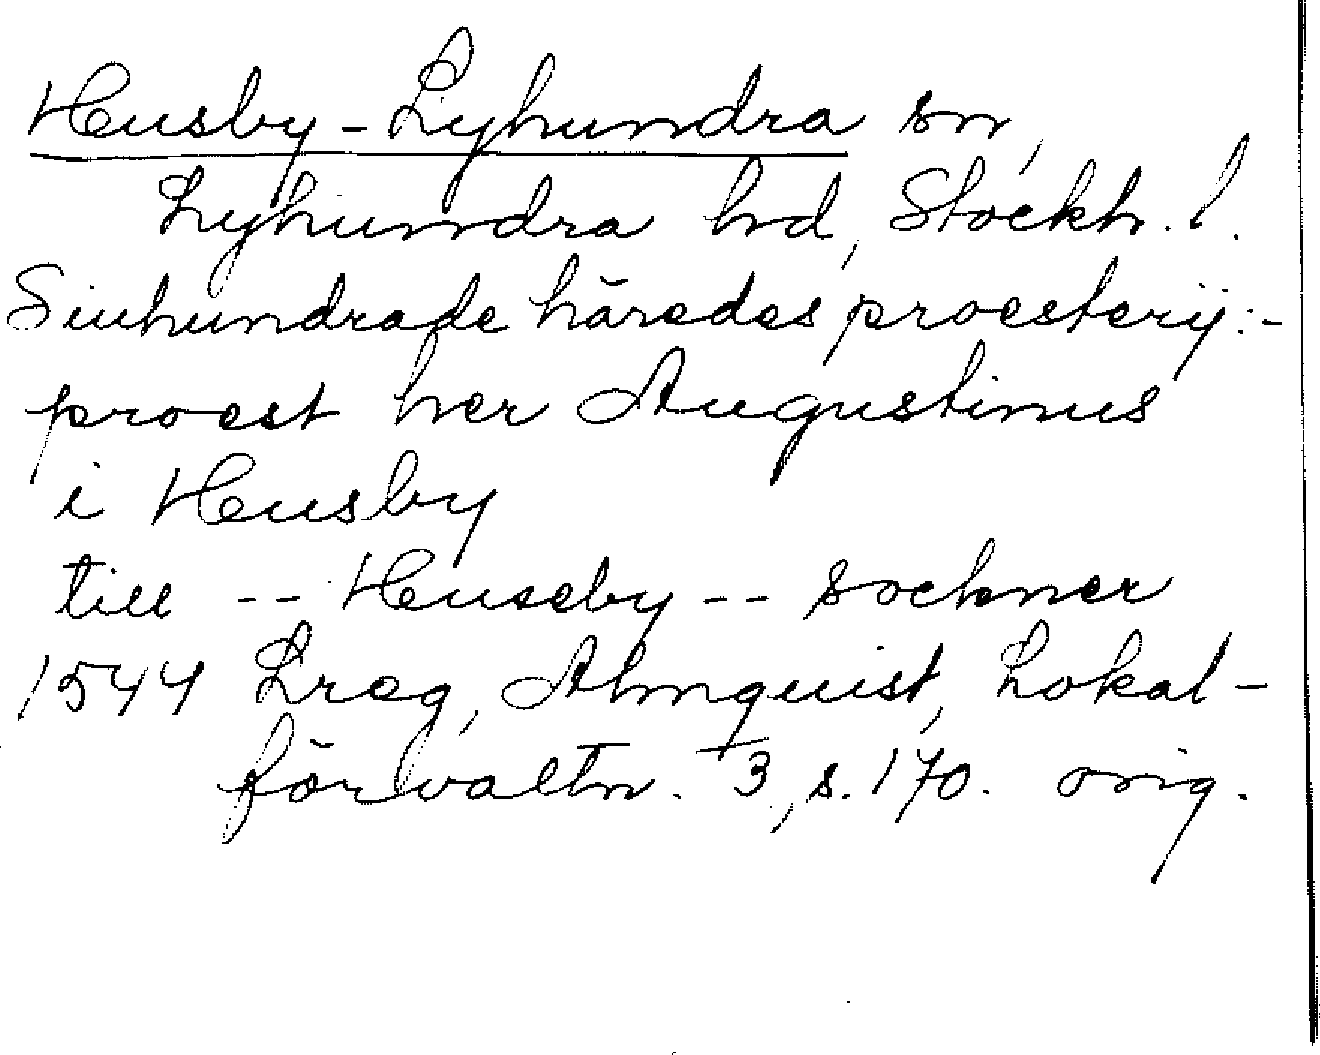 Husby-Lyhundra sn,
Lyhundra hd, Stockh. l.
Siuhundrade häredes proesterij:-
proest her Augustinus
i Husby
till -- Huseby -- sochner
1544 Lreg, Almquist, Lokal-
förvaltn. 3, s. 170. orig.